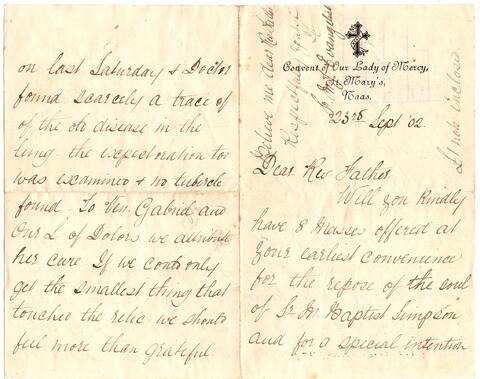 Convent of Our Lady of Mercy,
St. Mary's,
Naas.
23rd Sept '02.
Dear Rev Father
Will you kindly
have 8 Masses offered at
your earliest convenience
for the repose of the soul
of Sr M. Baptist Simpson
and for a special intention
on last Saturday & Doctor
found scarcely a trace of
of the old disease in the
lung. the expectoration too
was examined & no tubercle
found. To Ven. Gabriel and
Our L of Dolors we attribute
her cure If we could only
get the smallest thing that
touched the relic we should
feel more than grateful
Believe me dear Rev Father
Respectfully
Sr M. Evangelist
£1 note enclosed